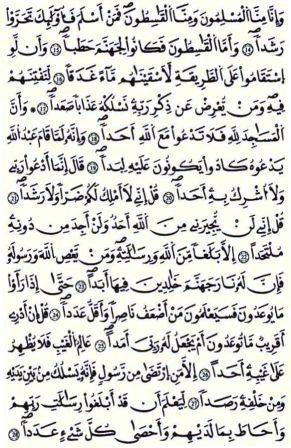 وَإِنَّا مِنَّا اَ۬لْمُسْلِمُونَ وَمِنَّا اَ۬لْقَٰسِطُونَ فَمَنَ اَسْلَمَ فَأُوْلَٰٓئِكَ تَحَرَّوْاْ
رَشَداٗ ١٤ وَأَمَّا اَ۬لْقَٰسِطُونَ فَكَانُواْ لِجَهَنَّمَ حَطَباٗ ١٥ وَأَن لَّوِ
اِ۪سْتَقَٰمُواْ عَلَى اَ۬لطَّرِيقَةِ لَأَسْقَيْنَٰهُم مَّآءً غَدَقاٗ ١٦ لِّنَفْتِنَهُمْ
فِيهِ وَمَنْ يُّعْرِضْ عَن ذِكْرِ رَبِّهِۦ نَسْلُكْهُ عَذَاباٗ صَعَداٗ ١٧ وَأَنَّ
اَ۬لْمَسَٰجِدَ لِلهِ فَلَا تَدْعُواْ مَعَ اَ۬للَّهِ أَحَداٗ ١٨ وَإِنَّهُۥ لَمَّا قَامَ عَبْدُ اُ۬للَّهِ
يَدْعُوهُ كَادُواْ يَكُونُونَ عَلَيْهِ لِبَداٗ ١٩ قَالَ إِنَّمَآ أَدْعُواْ رَبِّے
وَلَآ أُشْرِكُ بِهِۦٓ أَحَداٗ ٢٠ قُلِ اِنِّے لَآ أَمْلِكُ لَكُمْ ضَرّاٗ وَلَا رَشَداٗ ٢١
قُلِ اِنِّے لَنْ يُّجِيرَنِے مِنَ اَ۬للَّهِ أَحَدٌ وَلَنَ اَجِدَ مِن دُونِهِۦ
مُلْتَحَداً ٢٢ اِلَّا بَلَٰغاٗ مِّنَ اَ۬للَّهِ وَرِسَٰلَٰتِهِۦ وَمَنْ يَّعْصِ اِ۬للَّهَ وَرَسُولَهُۥ
فَإِنَّ لَهُۥ نَارَ جَهَنَّمَ خَٰلِدِينَ فِيهَآ أَبَداً ٢٣ حَتَّىٰٓ إِذَا رَأَوْاْ
مَا يُوعَدُونَ فَسَيَعْلَمُونَ مَنَ اَضْعَفُ نَاصِراٗ وَأَقَلُّ عَدَداٗ ٢٤ قُلِ اِنَ اَدْرِےٓ
أَقَرِيبٞ مَّا تُوعَدُونَ أَمْ يَجْعَلُ لَهُۥ رَبِّيَ أَمَداً ٢٥ عَٰلِمُ اُ۬لْغَيْبِ فَلَا يُظْهِرُ
عَلَىٰ غَيْبِهِۦٓ أَحَداً ٢٦ اِلَّا مَنِ اِ۪رْتَضَىٰ مِن رَّسُولٖ فَإِنَّهُۥ يَسْلُكُ مِنۢ بَيْنِ يَدَيْهِ
وَمِنْ خَلْفِهِۦ رَصَداٗ ٢٧ لِّيَعْلَمَ أَن قَدَ اَبْلَغُواْ رِسَٰلَٰتِ رَبِّهِمْ
وَأَحَاطَ بِمَا لَدَيْهِمْ وَأَحْصَىٰ كُلَّ شَےْءٍ عَدَداٗ ٢٨